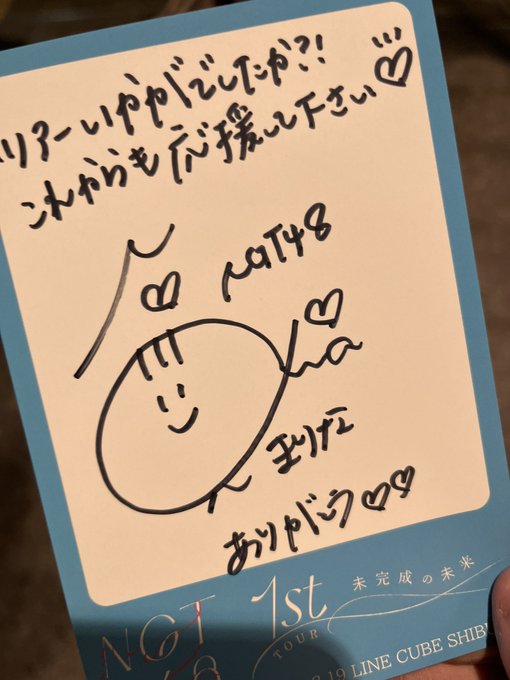 ツアーいかがでしたか?!
これからも応援して下さい♡
NGT48
ありがとう♡♡
NGT48
1st
TOUR
未完成の未来
19 LINE CUBE SHIBU